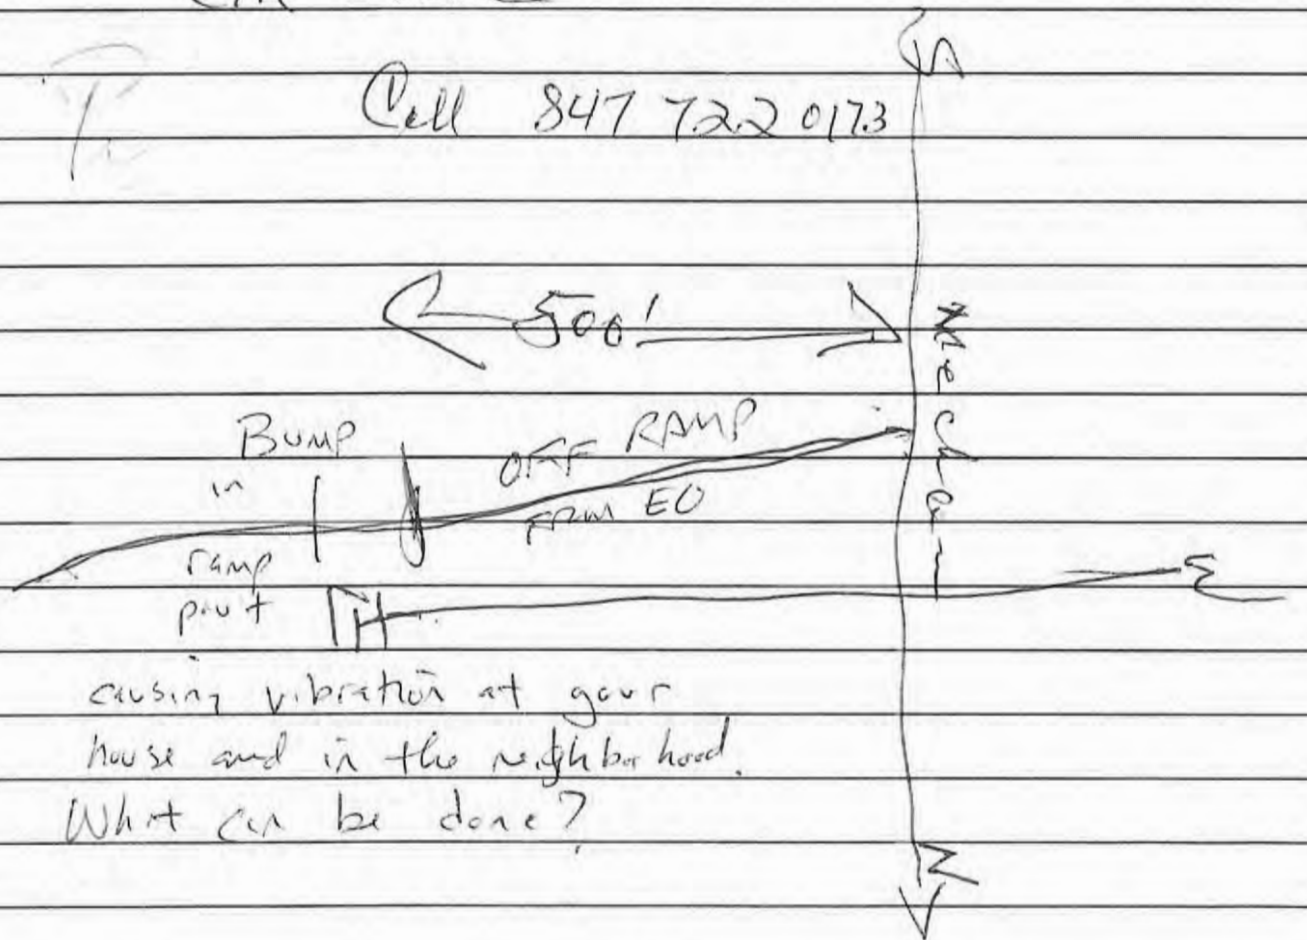 S
Cell 847 722 0173
500'
Bump
in
ramp
pav't
OFF RAMP
FROM EO
E
causing vibration at your
house and in the neighborhood.
What can be done?
N